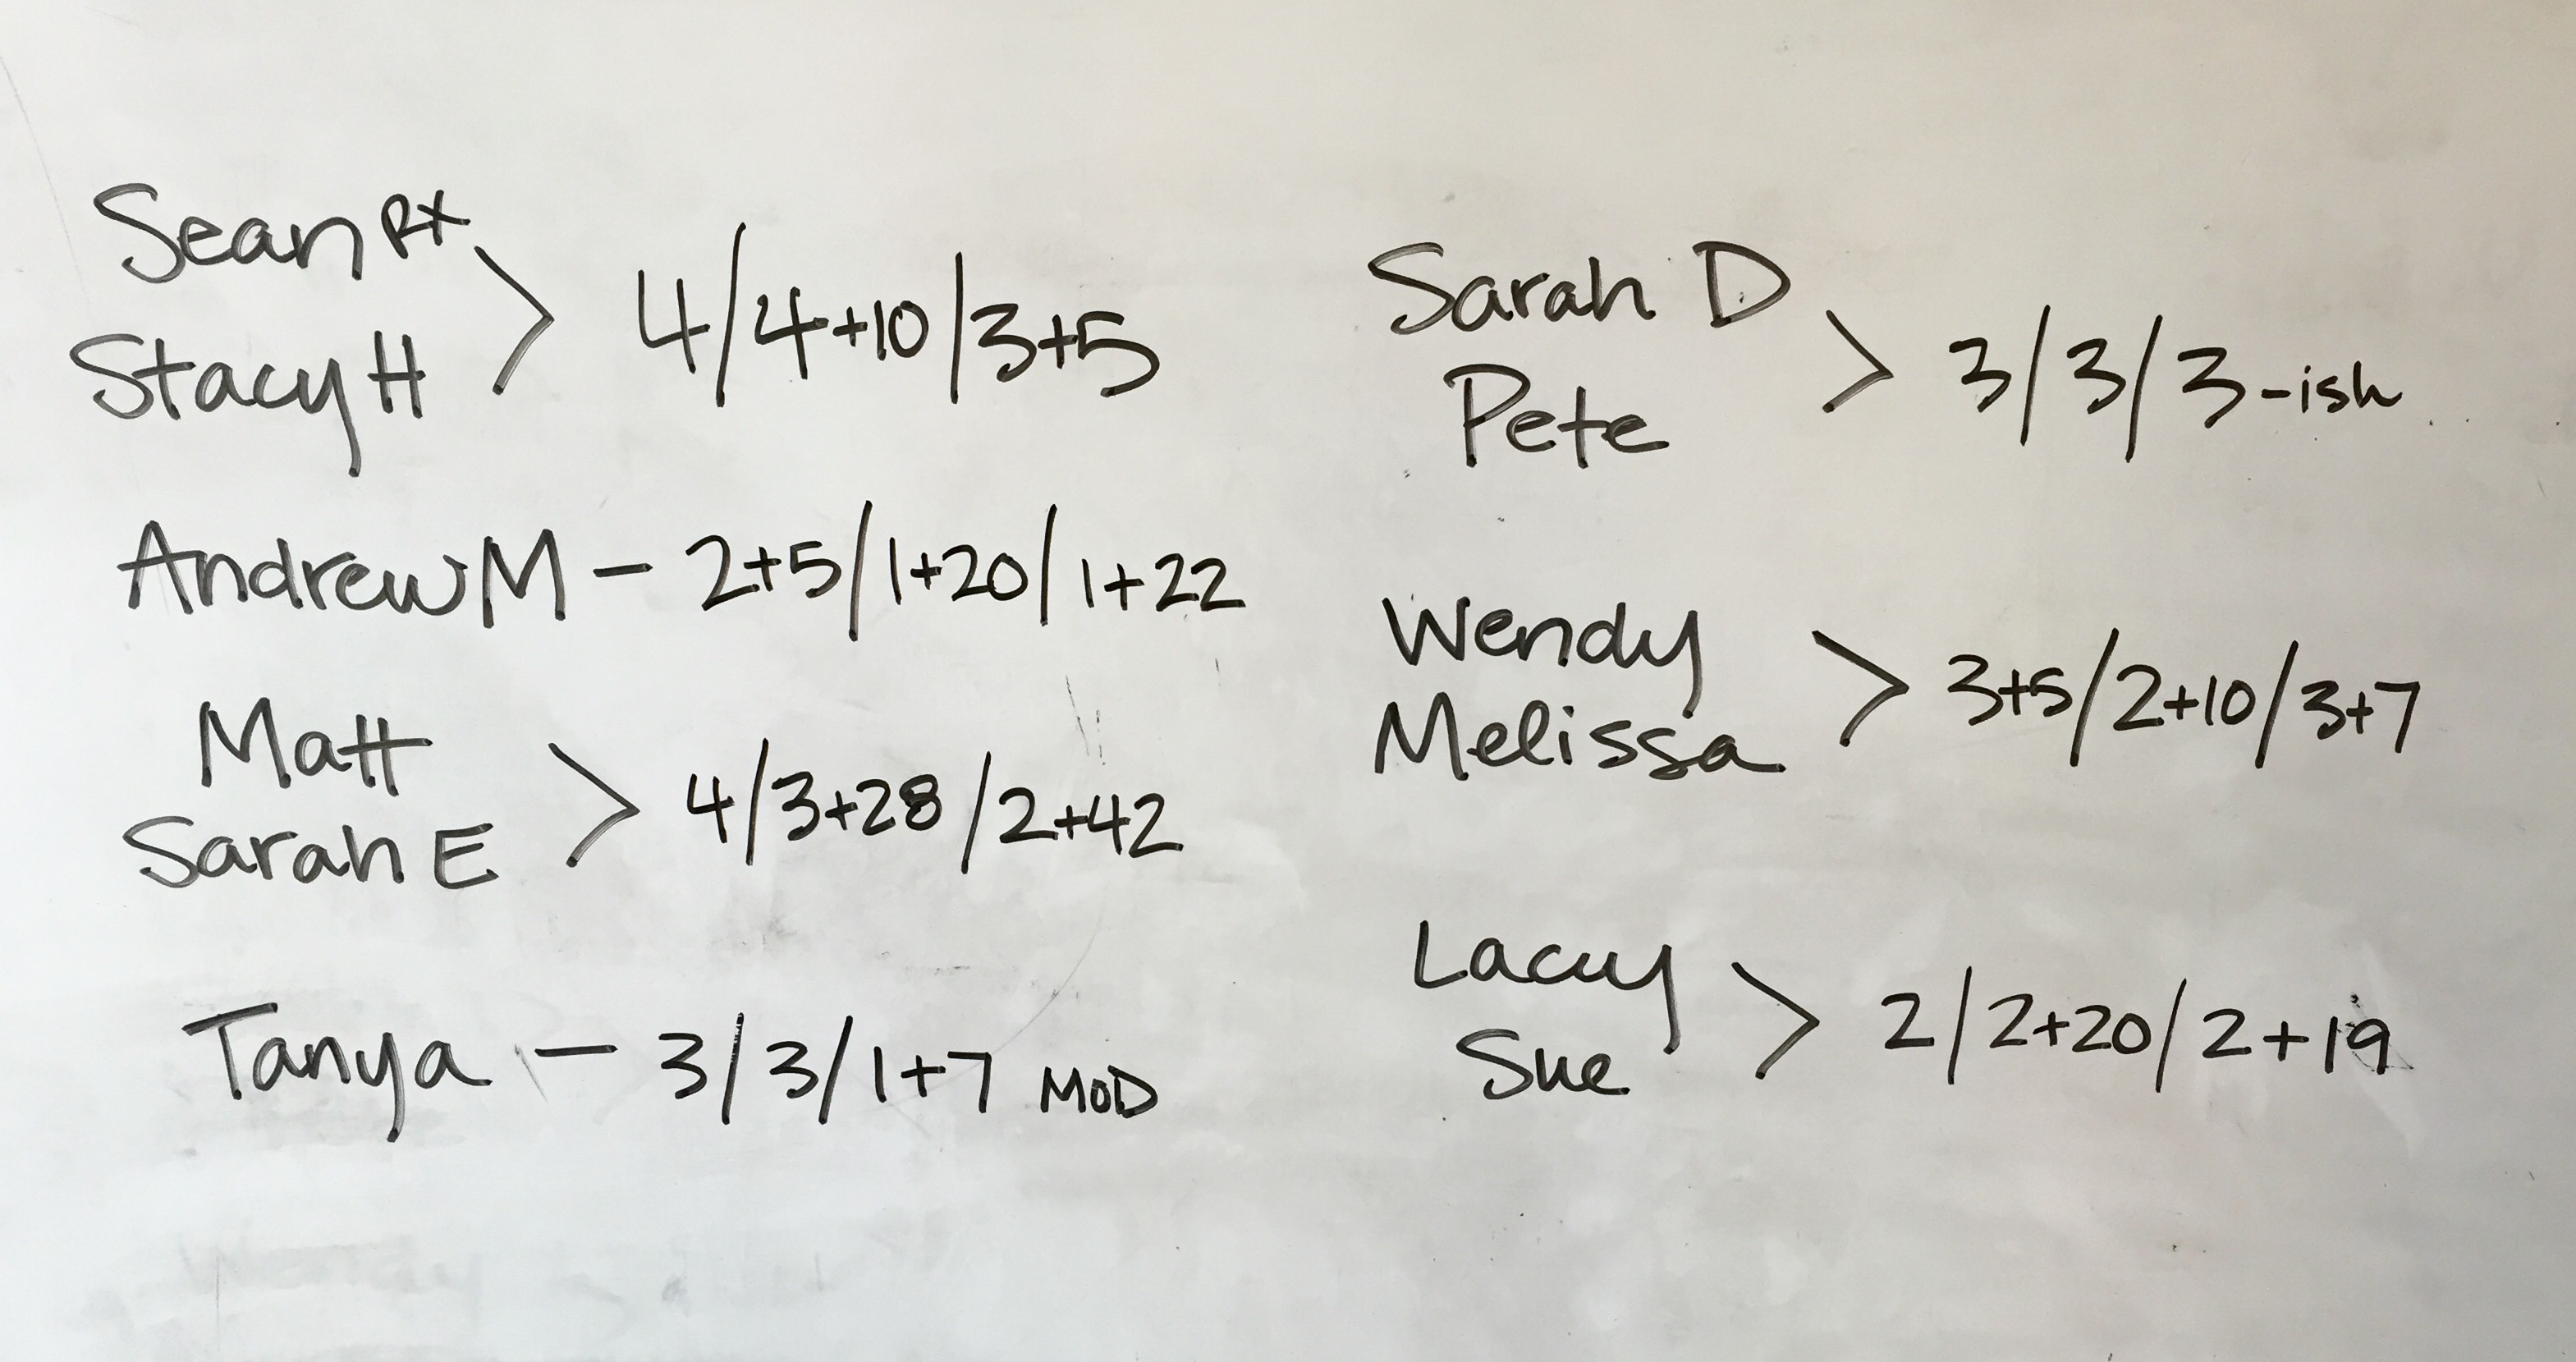 Sean RX
Stacy H > 4/4+10/3+5
Andrew M - 2+5/1+20/1+22
Matt
Sarah E > 4/3+28/2+42
Tanya - 3/3/1+7 MOD
Sarah D
Pete > 3/3/3-ish
Wendy
Melissa > 3+5/2+10/3+7
Lacey
Sue > 2/2+20/2+19